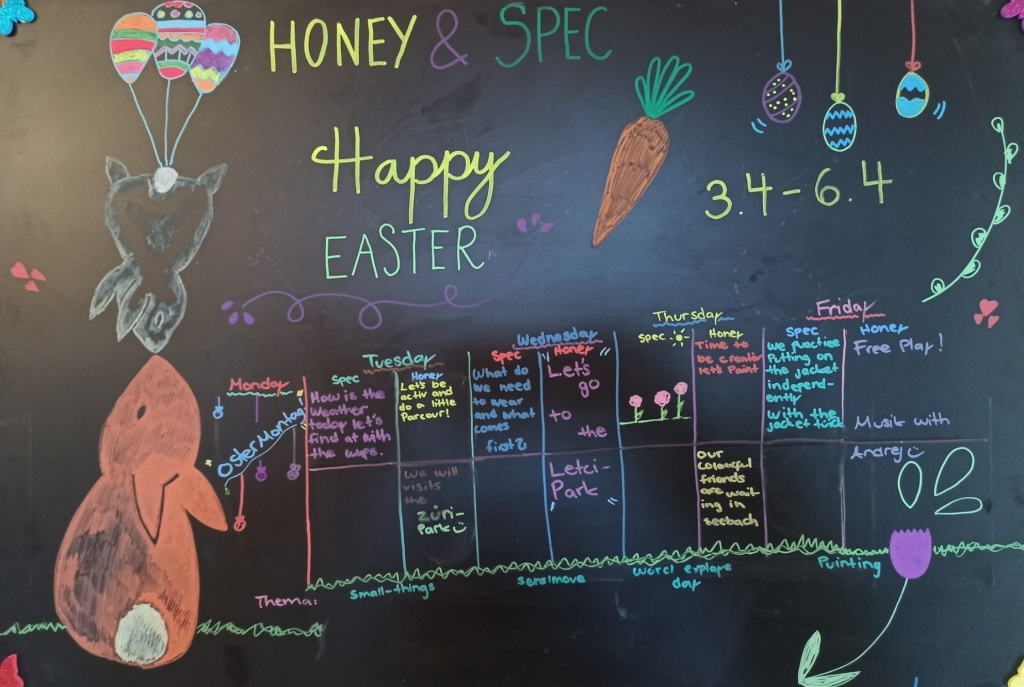 HONEY & SPEC
Happy
EASTER
3.4 - 6.4
Monday
Oster Montag
Tuesday
Spec
How is the
Weather
today let's
find at with
the wups.
Honey
Let's be
activ and
do a little
Parcour!
We will
visits
the
Züri-
Park
Wednesday
Spec
What do
we need
to wear
and what
comes
first?
Honey
Let's
go
to
the
Letzi-
Park
Thursday
Spec
Honey
Time to
be creativ
let's Paint
our
colourful
friends
are wait
ing in
seebach
Friday
Spec
We practice
Putting on
the jacket
independ-
ently
with the
jacket trick
Honey
Free Play!
Musik with
Andrej
Thema:
Small-things
Sensimove
day